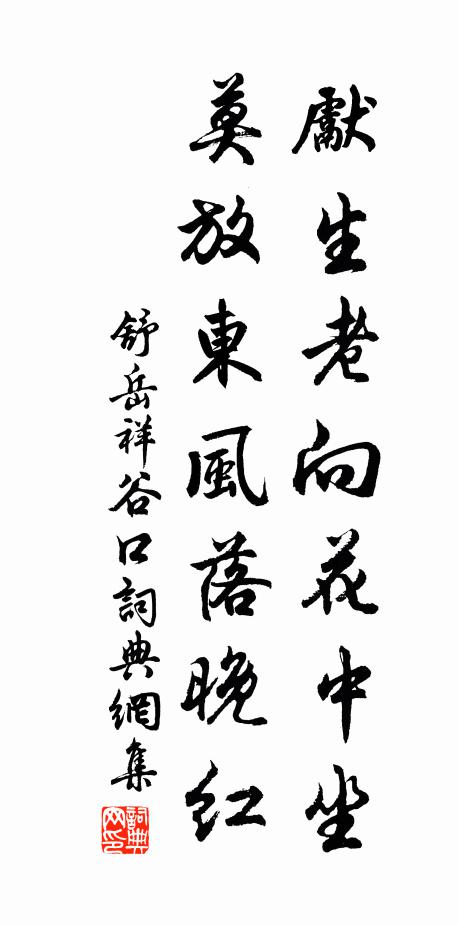 獻生老向花中坐
莫放東風落晚紅
舒岳祥谷口詞典網集
詞典
网印